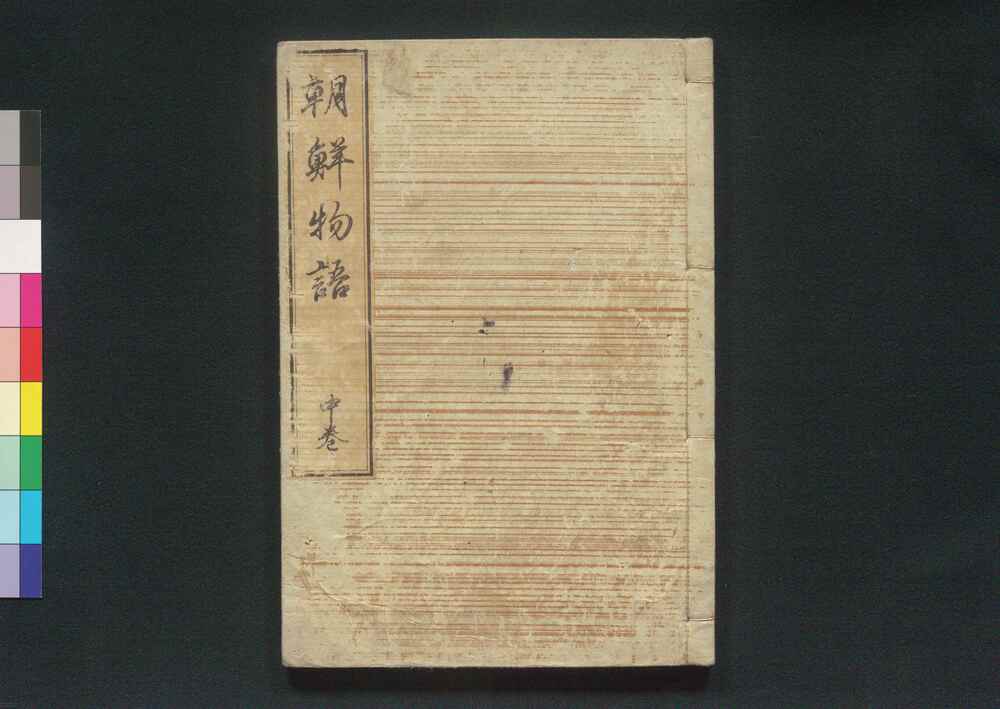 朝鮮物語
中巻